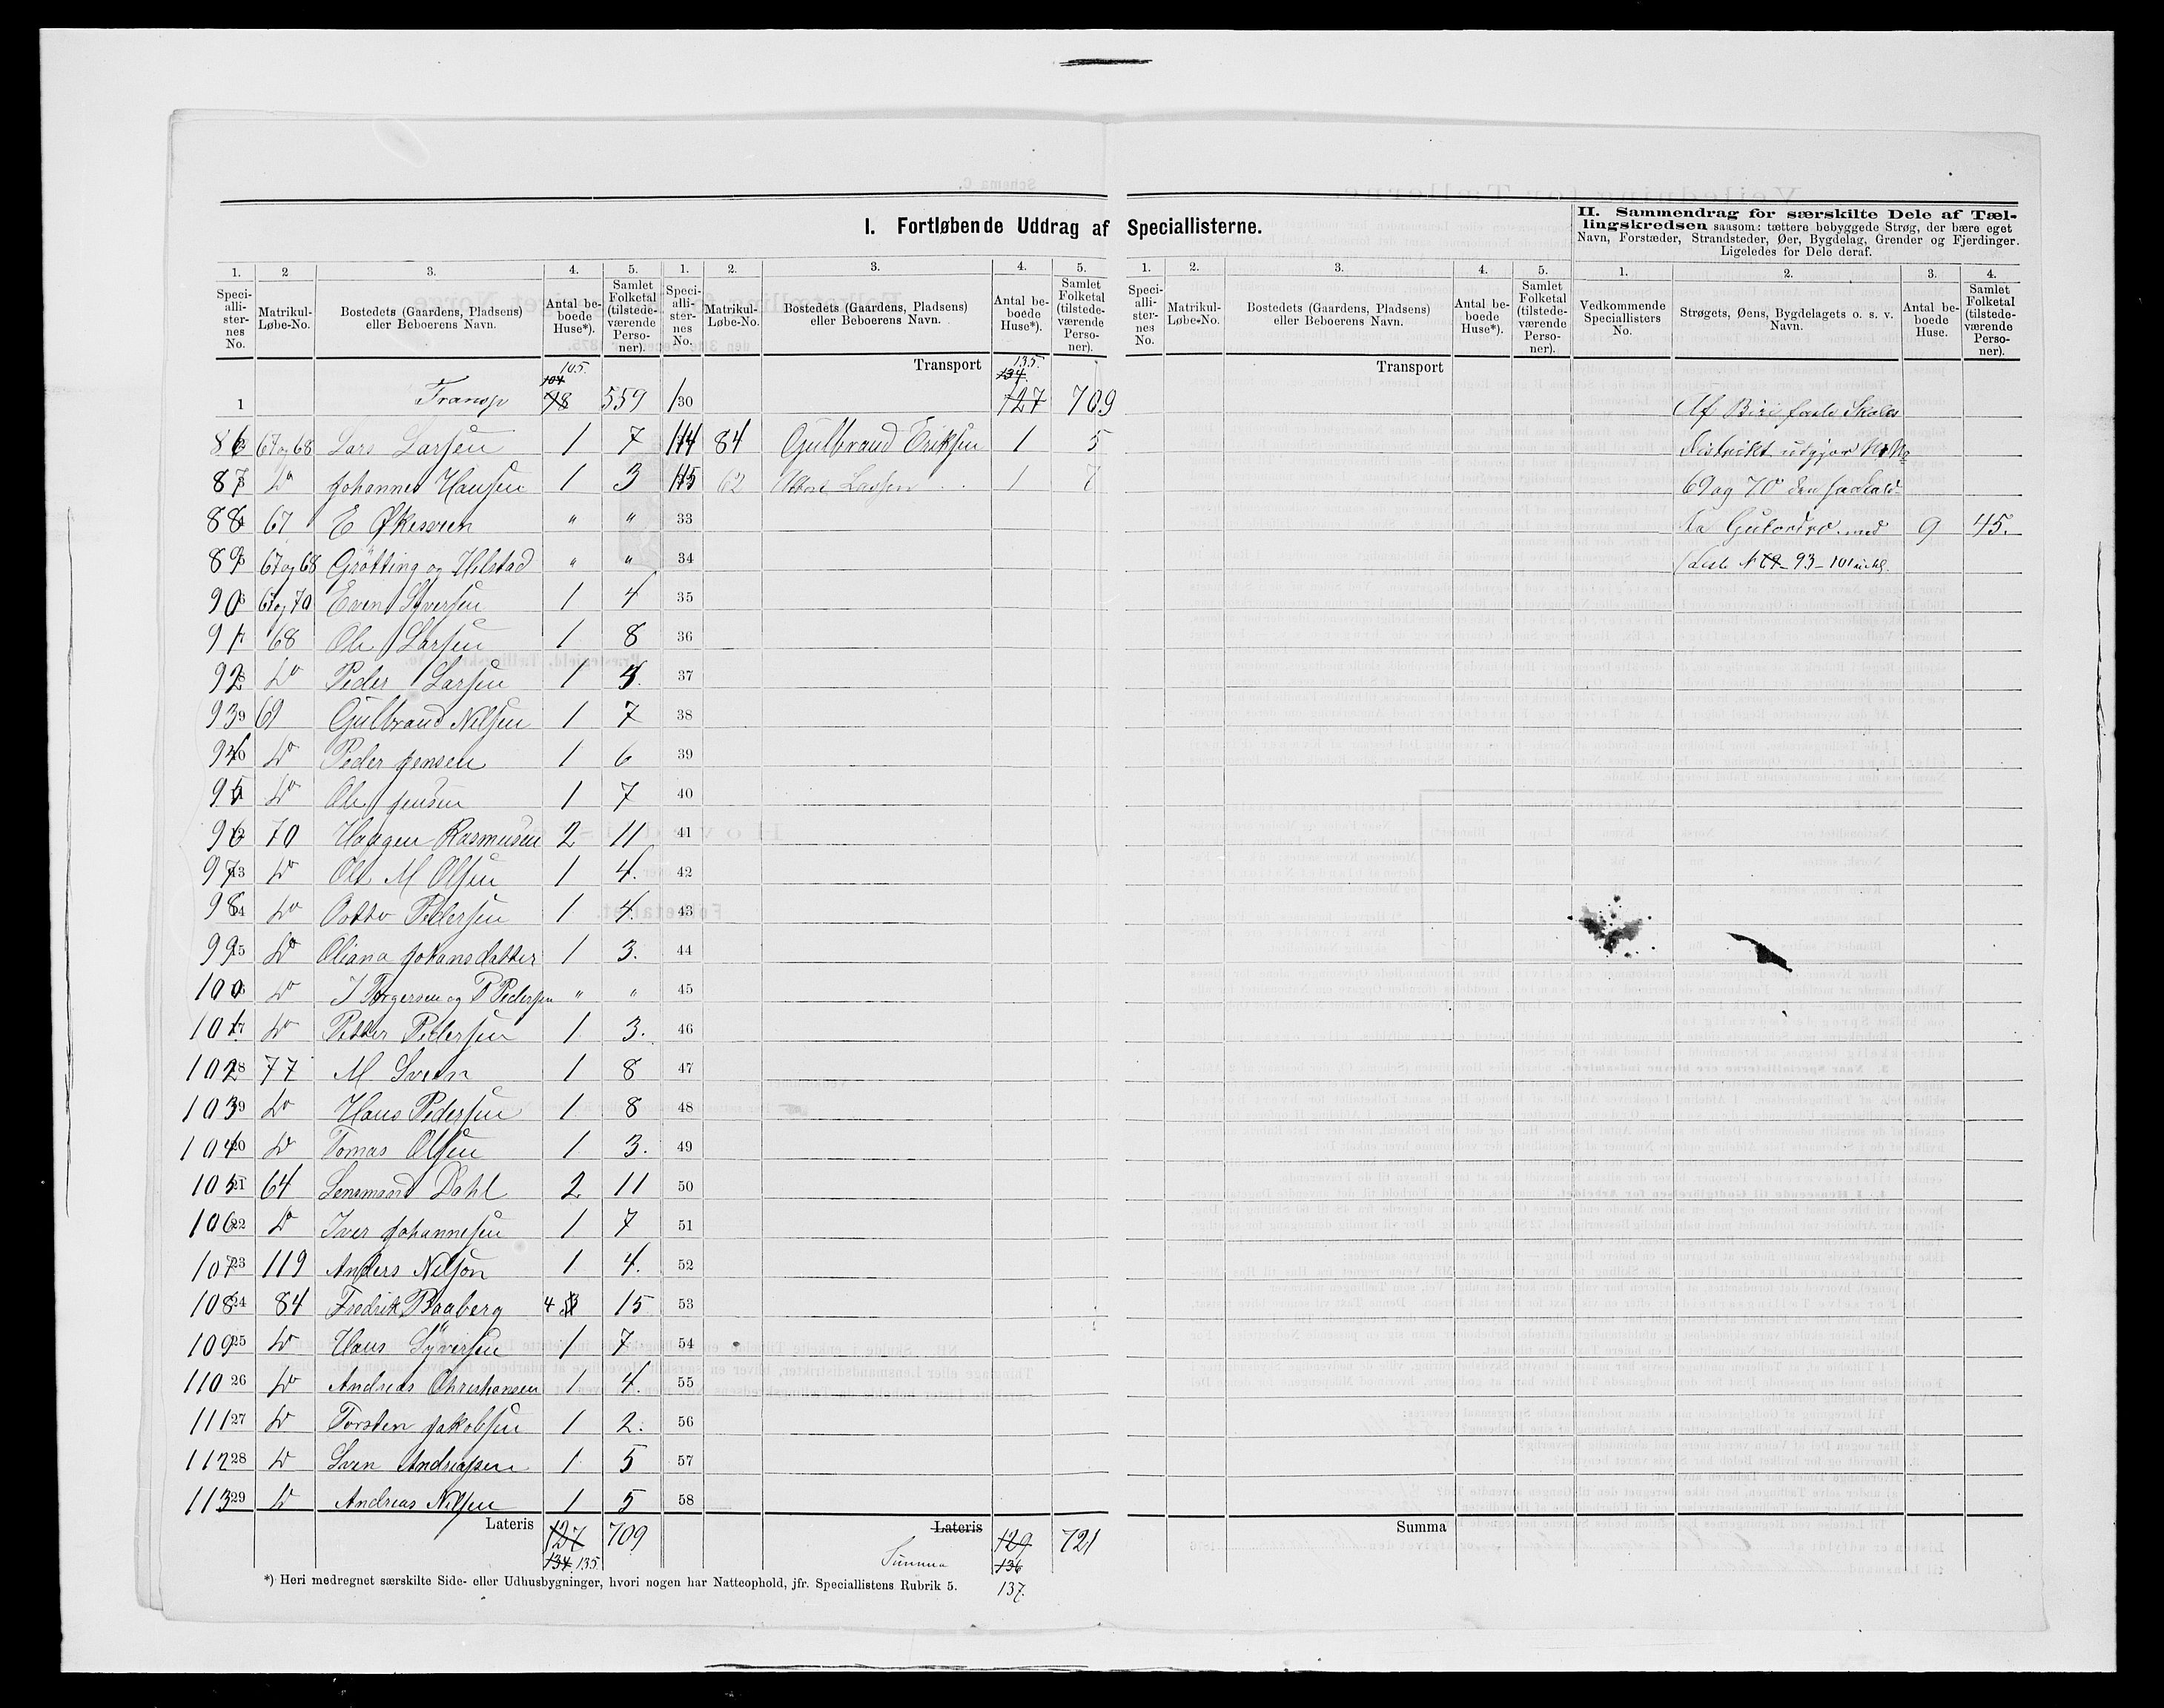 I. Fortløbende Uddrag af Speciallisterne.
II. Sammendrag for særskilte Dele af Tæl-
lingskredsen saasom: tættere bebyggede Strøg, der bære eget
Navn, Forstæder, Strandsteder, Øer, Bygdelag, Grender og Fjerdinger.
Ligeledes for Dele deraf.
1. 2 3. 4. 5.
Speciallisternes No. Matrikul-Løbe-No. Bostedets (Gaardens, Pladsens) eller Beboerens Navn. Antal beboede Huse*). Samlet Folketal (tilstedeværende Personer).
105.
104
1 Transp 98 559
86 67 og 68 Lars Larsen 1 7
87 Do Johannes Hansen 1 3
88 67 E Økesveen " "
89 67 og 68 Grøtting og Helstad " "
90 67 og 70 Even Syversen 1 4
91 68 Ole Larsen 1 8
92 Do Peder Larsen 1 5.
93 69 Gulbrand Nilsen 1 7
94 Do Peder Jensen 1 6
95 Do Ole Jensen 1 7
96 70 Haagen Rasmusen 2 11
97 Do Ole M Olsen 1 4.
98 Do Ootto Pedersen 1 4.
99 Do Oliana Johansdatter 1 3.
100 Do J Torgersen og P Pedersen " "
101 Do Petter Pedersen 1 3.
102 77 M Sveen 1 8
103 Do Hans Pedersen 1 8
104 Do Tomas Olsen 1 3.
105 64 Lensmand Dahl 2 11
106 Do Iver Johannesen 1 7
107 119 Anders Nilson 1 4.
108 84 Fredrik Braaberg 4 15
109 Do Hans Syversen 1 7
110 Do Andreas Christiansen 1 4.
111 Do Torsten Jakobsen 1 2.
112 Do Sven Andreasen 1 5
113 Do Andreas Nilsen 1 5
Lateris 127 709
134. 135
*) Heri medregnet særskilte Side- eller Udhusbygninger, hvori nogen har Natteophold, jfr. Speciallistens Rubrik 5.
1. 2. 3. 4. 5.
Speciallisternes No. Matrikul-Løbe-No. Bostedets (Gaardens, Pladsens) eller Beboerens Navn. Antal beboede Huse*). Samlet Folketal (tilstedeværende Personer).
Transport 135.
134.
130 127 709
114 84 Gulbrand Eriksen 1 5
115 62 Larsen 1 7
33
34
35
36
37
38
39
40
41
42
43
44
45
46
47
48
49
50
51
52
53
54
55
56
57
58
Lateris 129 721
Summa 136
137.
1. 2. 3. 4. 5.
Speciallisternes No. Matrikul-Løbe-No. Bostedets (Gaardens, Pladsens) eller Beboerens Navn. Antal beboede Huse*). Samlet Folketal (tilstedeværende Personer).
Transport
Summa
1. 2. 3. 4.
Vedkommende Speciallisters No. Strøgets, Øens, Bygdelagets o. s. v. Navn. Antal beboede Huse. Samlet Folketal (tilstedeværende Personer).
Af Biri faste Skoles
distrikt utgjør M No
69 og 70 den saakald-
te med 9 45.
(Liste N 93 - 101 inkl.